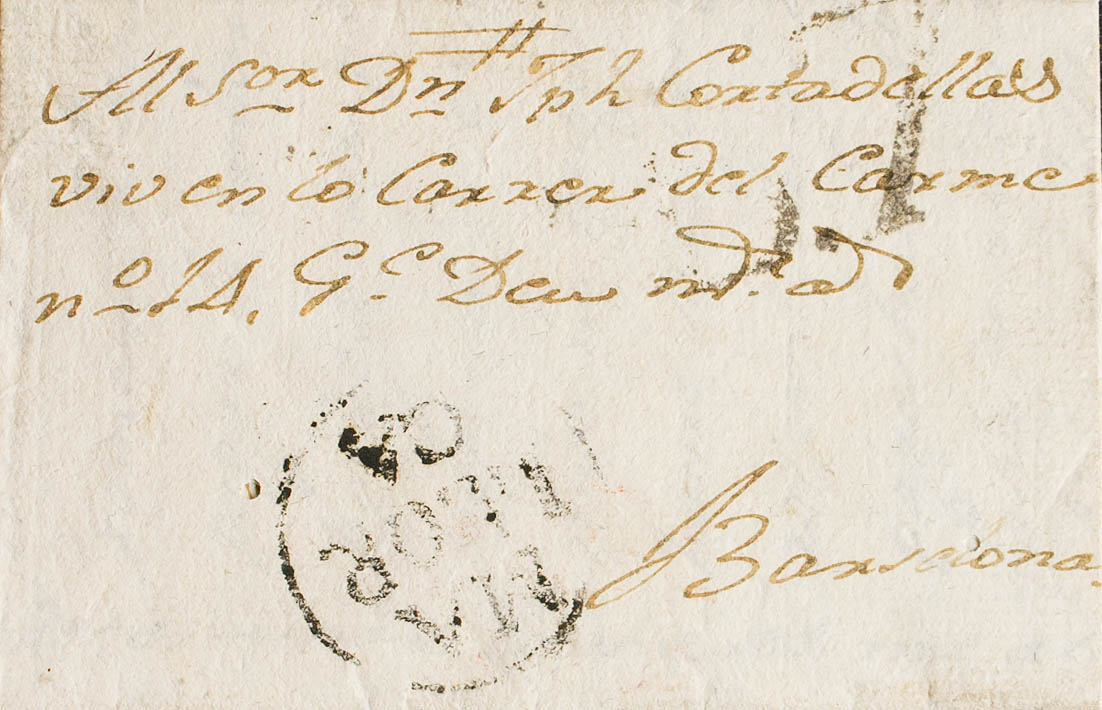 Al Sor Dn Jph Cortadellas
viv en lo Carrer del Carme
no 14, Gc. Deu
Barselona